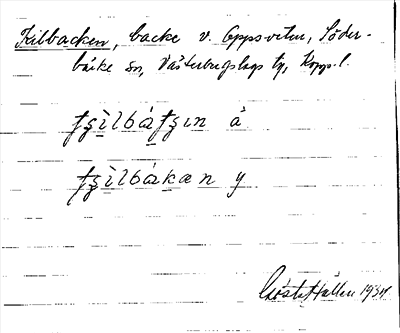 Kilbacken, backe v. Uppsveten, Söder-
bärke sn, Västerbergslags tg, Kopp. l.
tʂìlbátʂın å
tʂìlbákæn y
Gösta Hallen 1934